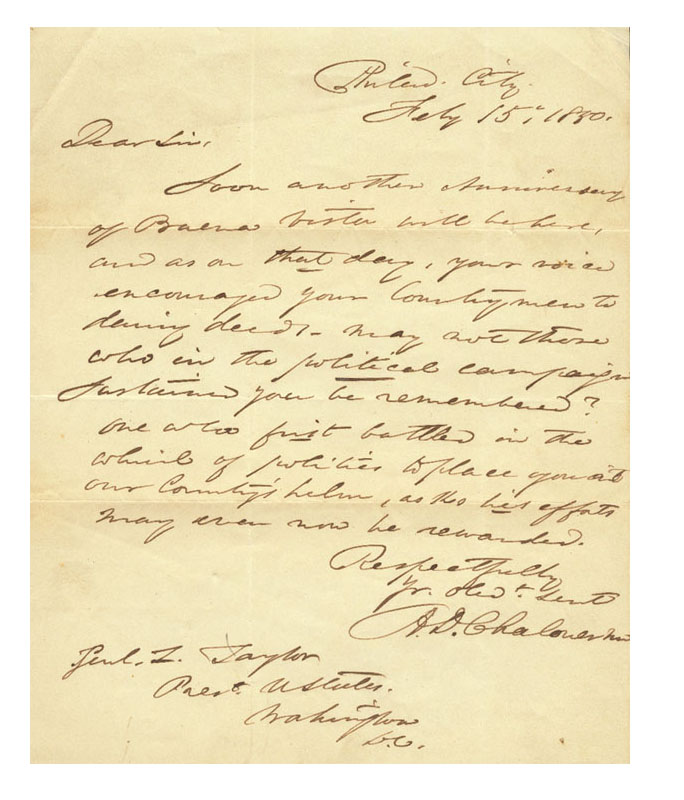 Philad. City.
Feby 15, 1850.
Dear Sir,
Soon another Anniversary
of Buena Vista will be here,
and as on that day, your voice
encouraged your Countrymen to
daring deeds - may not those
who in the political campaign
sustained you be remembered?
one who first battled in the
whirl of politics to place you at
our Country's helm, asks his efforts
may even now be rewarded.
Respectfully
Yr. Obed.t Servt
A. D. Chaloner
Genl. Z. Taylor
Prest. U States.
Washington
D.C.